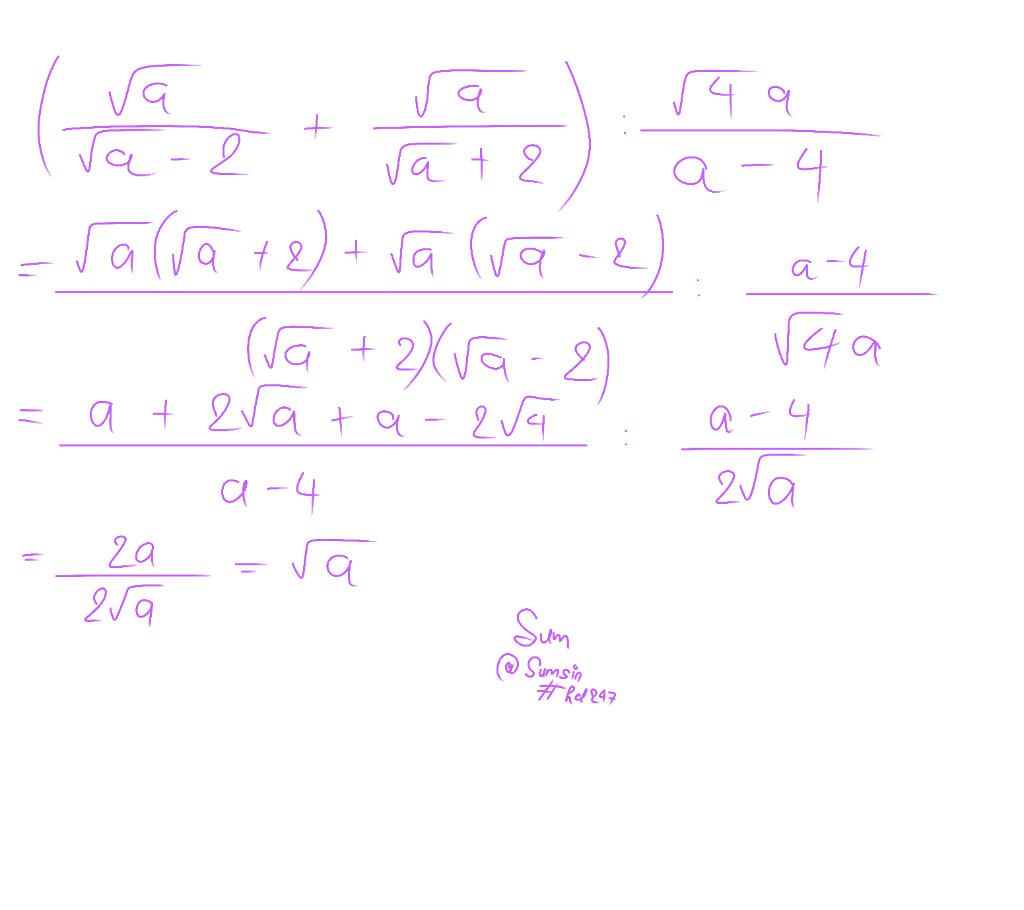 (√a/(√a - 2) + √a/(√a + 2)) : √4 a/(a - 4)
= (√a(√a + 2) + √a(√a - 2))/((√a + 2)(√a - 2)) : (a - 4)/(√4 a)
= (a + 2√a + a - 2√a)/(a - 4) : (a - 4)/(2√a)
= 2a/(2√a) = √a
Sum
@Sumsin
#hd247